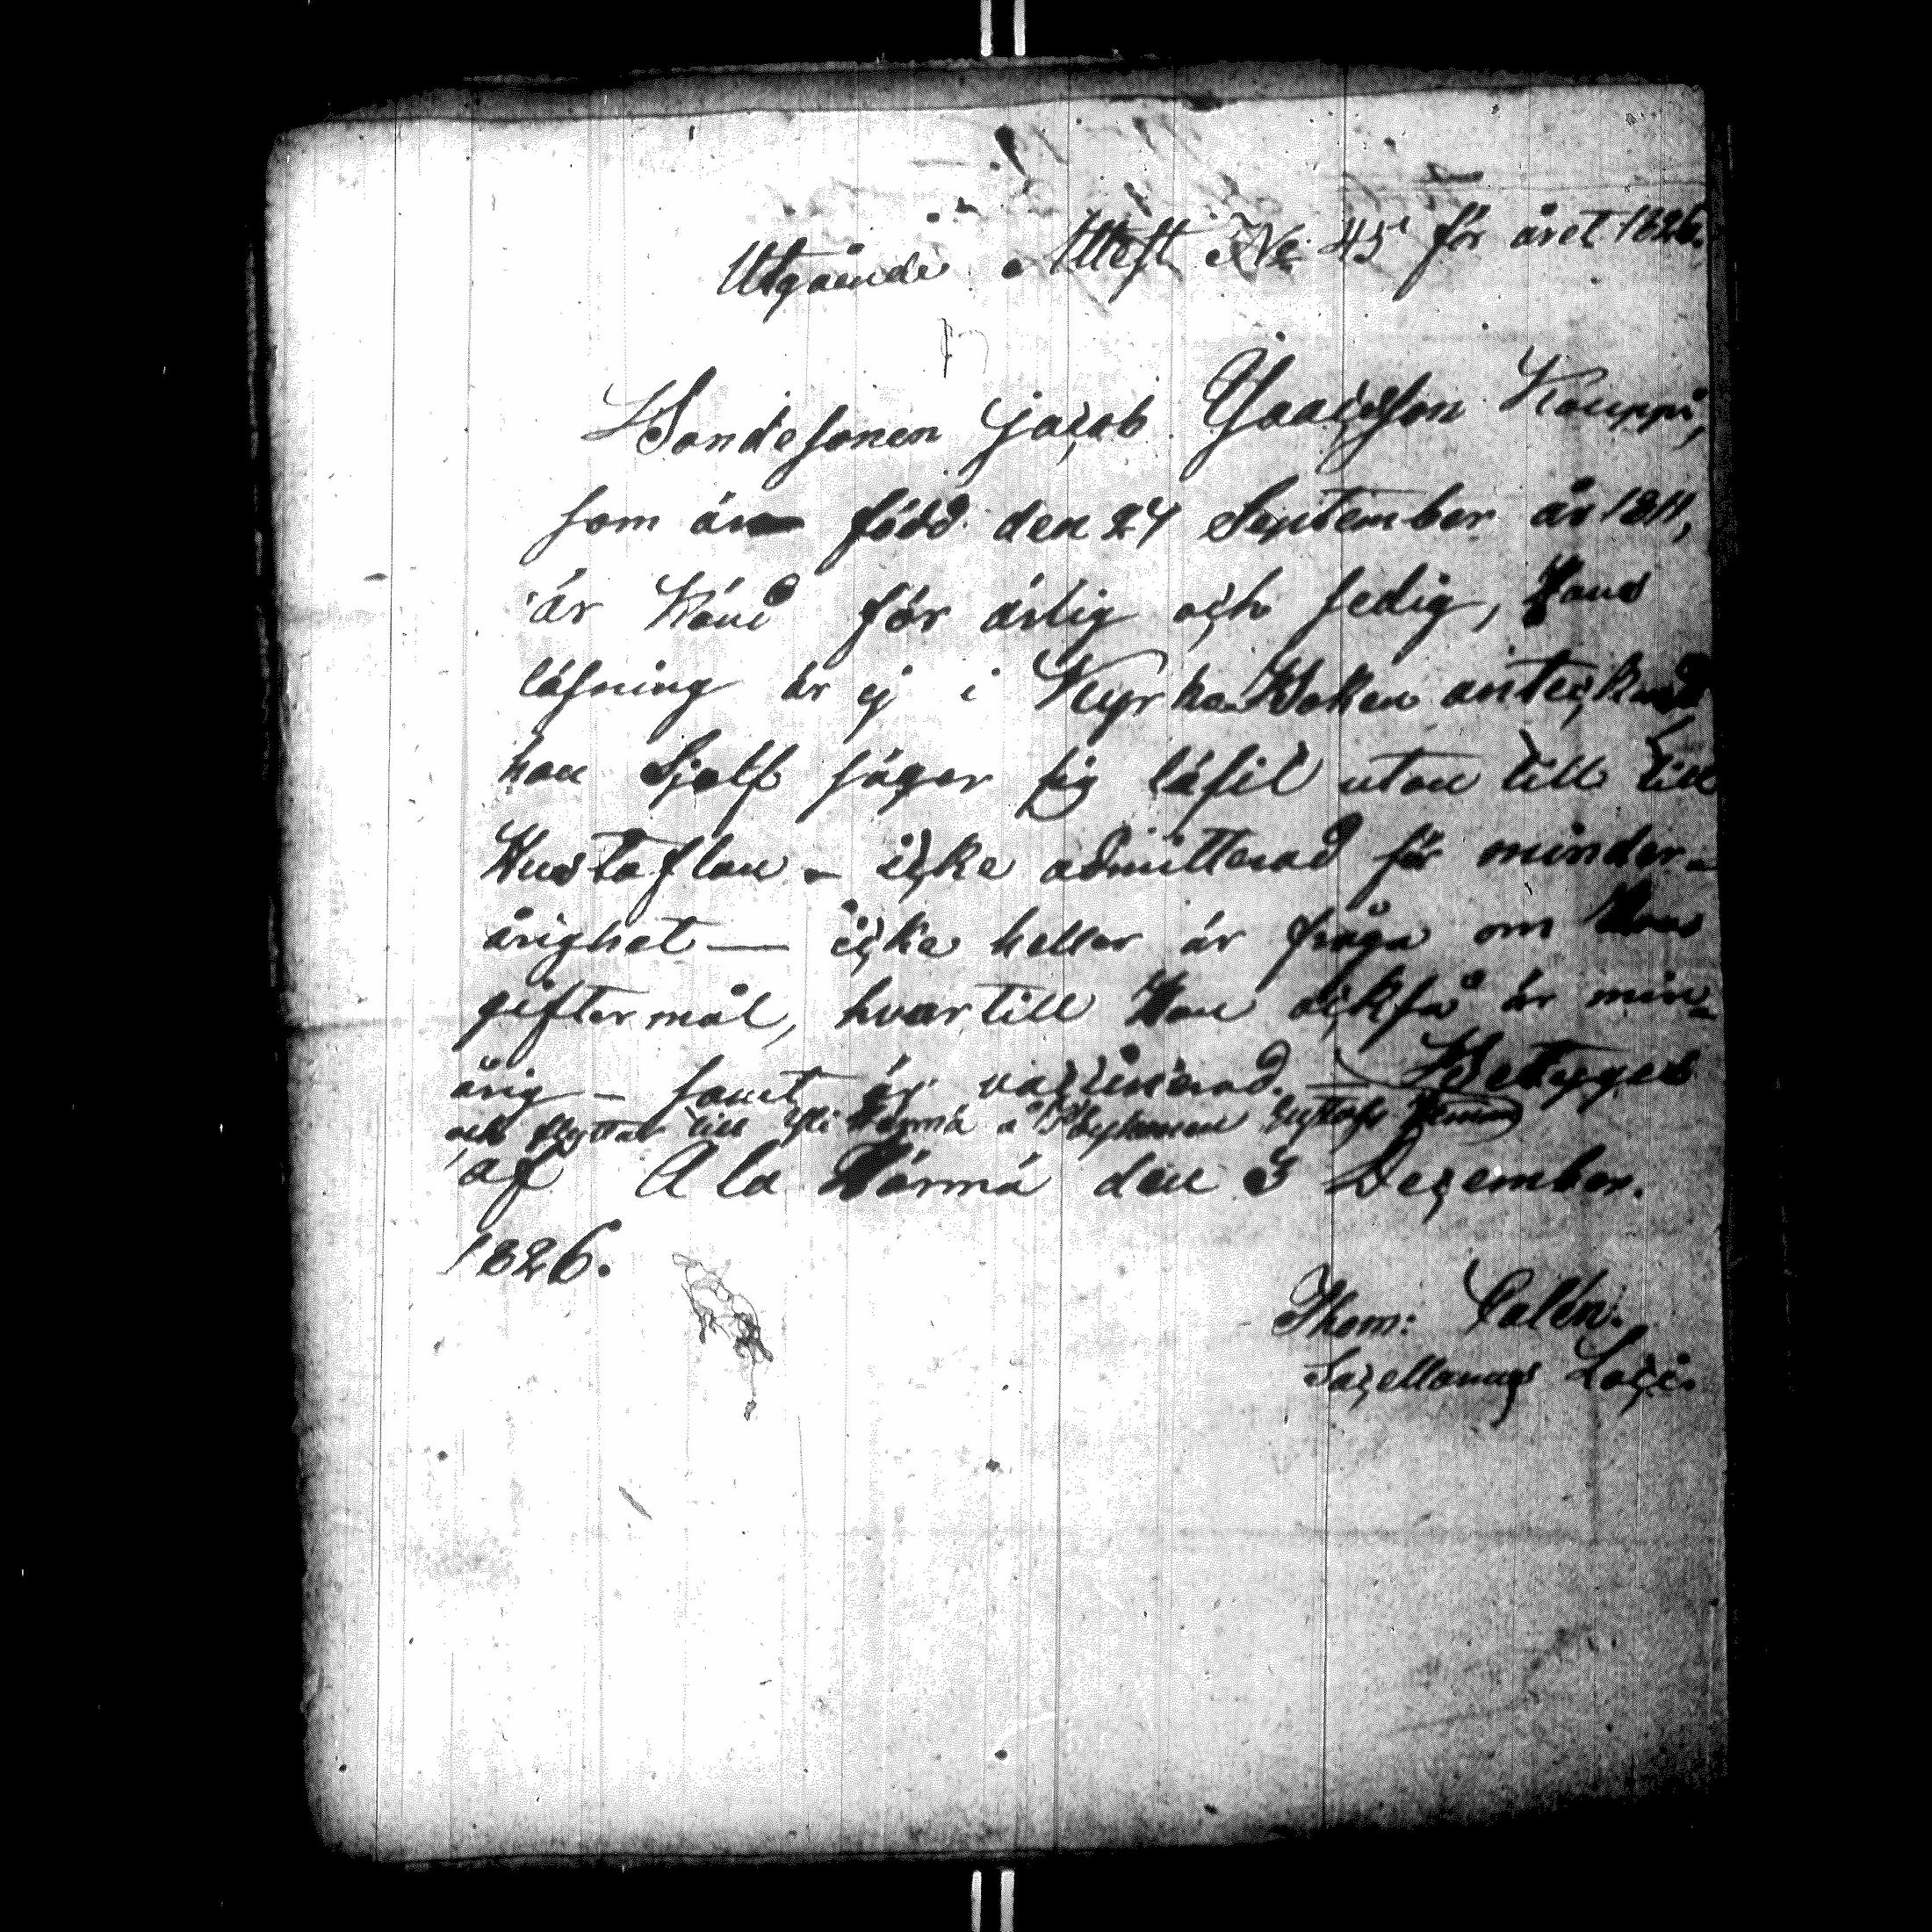 Utgående Attest No 45 för året 1826.
Bondesonen Jacob Jaacsson Kauppi,
som är född den 24 September år 1811,
är känd för ärlig och sedig, Hans
läsning är ej i Kyrko Boken antecknad
han Sjelf säger sig läsit utan till till
Hustaflan - icke admitterad för minder-
årighet — icke heller är fråga om Hans
giftermål, hvartill Han också är min-
årig - samt är vaccinerad. — Betyges
och flyttar till Yli Härmä a Gustafs
af Ala Härmä den 3 December.
1826.
Thom: Calén.
Sacellanus Loci.